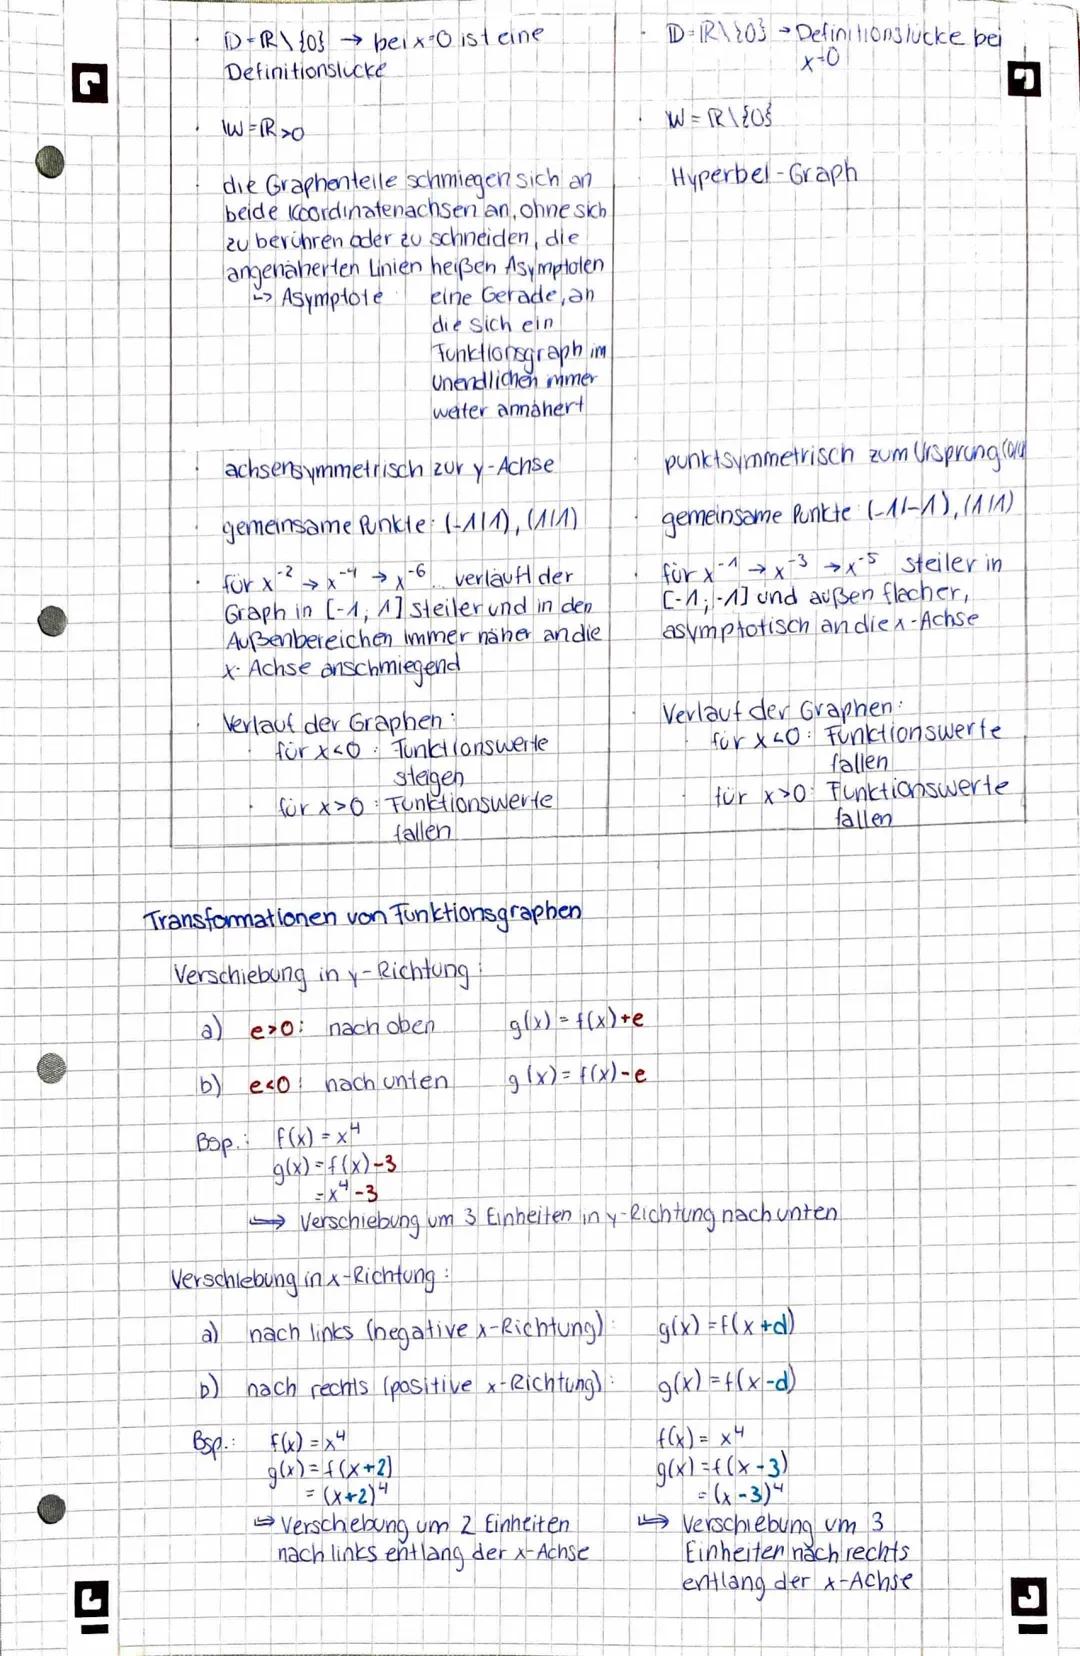 · D=ℝ\{0} → bei x=0 ist eine
Definitionslücke
· W=ℝ>0
· die Graphenteile schmiegen sich an
beide Koordinatenachsen an, ohne sich
zu berühren oder zu schneiden, die
angenäherten Linien heißen Asymptoten
↳ Asymptote: eine Gerade, an
die sich ein
Funktionsgraph im
Unendlichen immer
weiter annähert
· achsensymmetrisch zur y-Achse
· gemeinsame Punkte: (-1|1), (1|1)
· für x⁻² → x⁻⁴ → x⁻⁶... verläuft der
Graph in [-1; 1] steiler und in den
Außenbereichen immer näher an die
x-Achse anschmiegend
· Verlauf der Graphen:
· für x<0: Funktionswerte
steigen
· für x>0: Funktionswerte
fallen
· D=ℝ\{0} → Definitionslücke bei
x=0
· W=ℝ\{0}
Hyperbel-Graph
· punktsymmetrisch zum Ursprung (0|0)
· gemeinsame Punkte (-1|-1), (1|1)
· für x⁻¹ → x⁻³ → x⁻⁵ steiler in
[-1; -1] und außen flacher,
asymptotisch an die x-Achse
· Verlauf der Graphen:
· für x<0: Funktionswerte
fallen
· für x>0: Funktionswerte
fallen
Transformationen von Funktionsgraphen
Verschiebung in y-Richtung:
a) e>0: nach oben g(x) = f(x)+e
b) e<0: nach unten g(x) = f(x)-e
Bsp.: f(x) = x⁴
g(x) = f(x)-3
= x⁴-3
↳ Verschiebung um 3 Einheiten in y-Richtung nach unten
Verschiebung in x-Richtung:
a) nach links (negative x-Richtung): g(x) = f(x+d)
b) nach rechts (positive x-Richtung): g(x) = f(x-d)
Bsp.: f(x) = x⁴
g(x) = f(x+2)
= (x+2)⁴
↳ Verschiebung um 2 Einheiten
nach links entlang der x-Achse
f(x) = x⁴
g(x) = f(x-3)
= (x-3)⁴
↳ Verschiebung um 3
Einheiten nach rechts
entlang der x-Achse